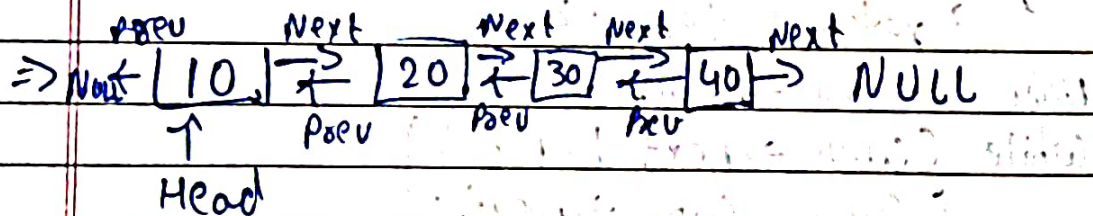 prev Next Next Next Next
=> Null ← 10 ⇄ 20 ⇄ 30 ⇄ 40 → NULL
↑ Prev Prev Prev
Head